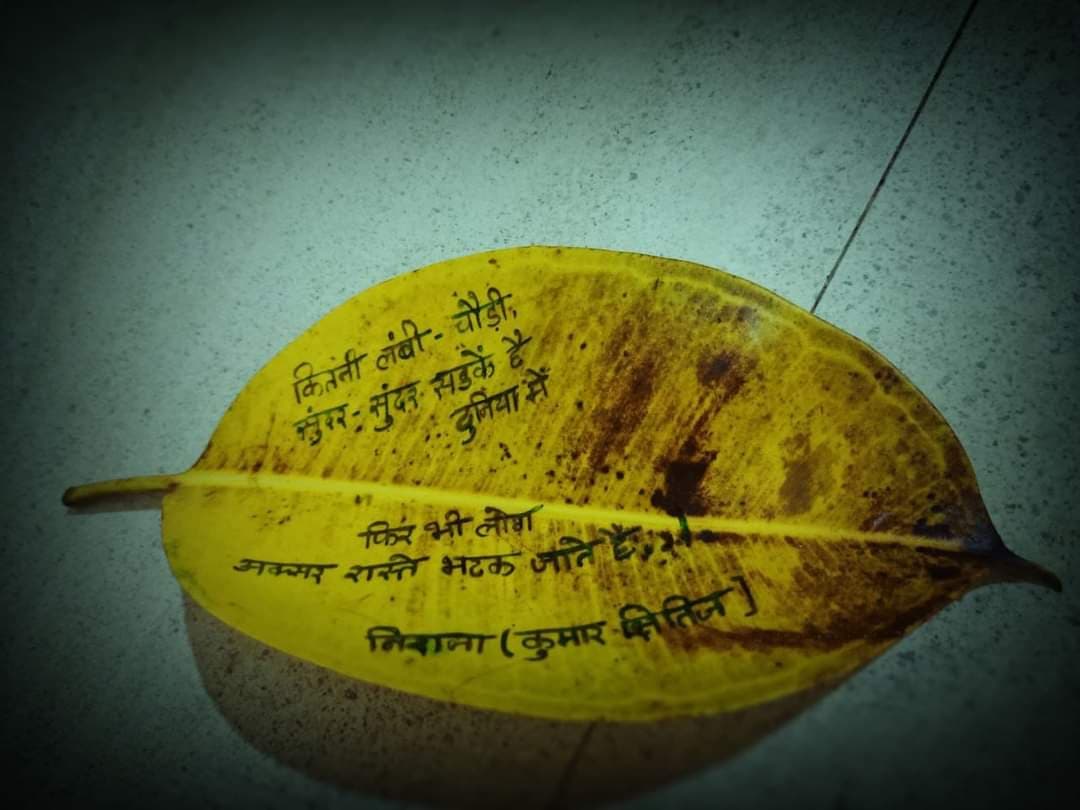 कितनी लंबी - चौड़ी,
सुंदर - सुंदर सडकें है
दुनिया में
फिर भी लोग
अक्सर रास्ते भटक जाते है,
(कुमार क्षितिज]